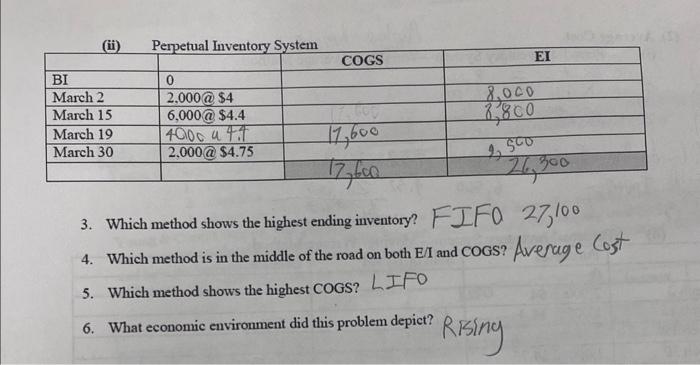 (ii) Perpetual Inventory System
COGS EI
BI 0
March 2 2,000@ $4 8,000
March 15 6,000@ $4.4 8,800
March 19 4000 @ 4.4 17,600
March 30 2,000@ $4.75 9,500
17,600 26,300
3. Which method shows the highest ending inventory? FIFO 27,100
4. Which method is in the middle of the road on both E/I and COGS? Average Cost
5. Which method shows the highest COGS? LIFO
6. What economic environment did this problem depict? Rising